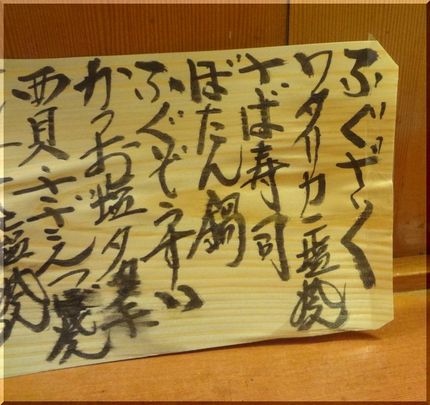 ふぐざく
ワタリカニ塩焼
さば寿司
ぼたん鍋
ふぐぞうすい
かつお塩タタキ
西貝 さざえつぼ焼
塩焼